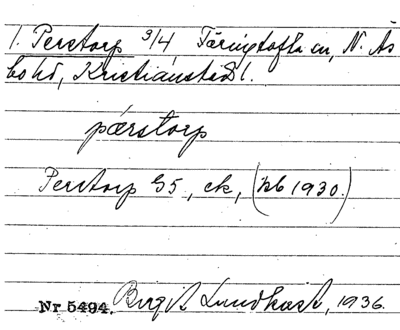 1. Perstorp 3/4 Färingtofta sn, N. Ås
bo hd, Kristianstad l.
pærstorp
Perstorp G5, ek, (kb 1930.)
Nr 5494. Birgit Lundkvist, 1936.